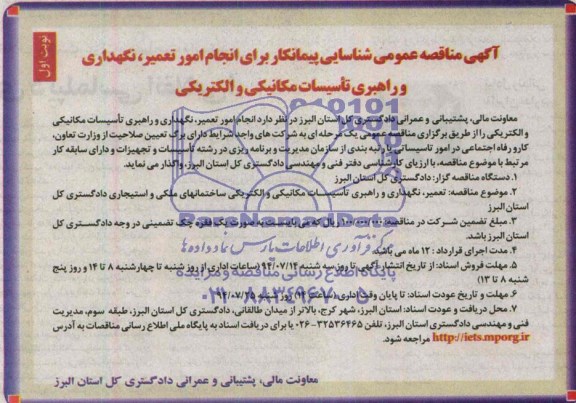 نوبت اول
آگهی مناقصه عمومی شناسایی پیمانکار برای انجام امور تعمیر، نگهداری
و راهبری تأسیسات مکانیکی و الکتریکی
معاونت مالی، پشتیبانی و عمرانی دادگستری کل استان البرز در نظر دارد انجام امور تعمیر، نگهداری و راهبری تأسیسات مکانیکی
و الکتریکی را از طریق برگزاری مناقصه عمومی یک مرحله ای به شرکت های واجد شرایط دارای برگ تعیین صلاحیت از وزارت تعاون،
کار و رفاه اجتماعی در امور تاسیساتی یا رتبه بندی از سازمان مدیریت و برنامه ریزی در رشته تأسیسات و تجهیزات و دارای سابقه کار
مرتبط با موضوع مناقصه، با ارزیابی کارشناسی دفتر فنی و مهندسی دادگستری کل استان البرز، واگذار می نماید.
۱. دستگاه مناقصه گزار: دادگستری کل استان البرز
۲. موضوع مناقصه: تعمیر، نگهداری و راهبری تأسیسات مکانیکی و الکتریکی ساختمانهای ملکی و استیجاری دادگستری کل
استان البرز
۳. مبلغ تضمین شرکت در مناقصه: ریال که می بایست به صورت یک فقره چک تضمینی در وجه دادگستری کل
استان البرز باشد.
۴. مدت اجرای قرارداد: ۱۲ ماه می باشد.
۵. مهلت فروش اسناد: از تاریخ انتشار آگهی تا روز سه شنبه ۹۴/۰۷/۱۴ (ساعات اداری از روز شنبه تا چهارشنبه ۸ تا ۱۴ و روز پنج
شنبه ۸ تا ۱۳)
۶. مهلت و تاریخ عودت اسناد: تا پایان وقت اداری روز
۷. محل دریافت و عودت اسناد: استان البرز، شهر کرج، بالاتر از میدان طالقانی، دادگستری کل استان البرز، طبقه سوم، مدیریت
فنی و مهندسی دادگستری استان البرز، تلفن ۳۲۵۳۶۴۶۵-۰۲۶ یا برای دریافت اسناد به پایگاه ملی اطلاع رسانی مناقصات به آدرس
http://iets.mporg.ir مراجعه شود.
معاونت مالی، پشتیبانی و عمرانی دادگستری کل استان البرز
ParsNamadData
مرکز فرآوری اطلاعات پارس نماد داده ها
پایگاه اطلاع رسانی مناقصه و مزایده
۰۲۱-۸۸۳۴۹۶۷۰-۵